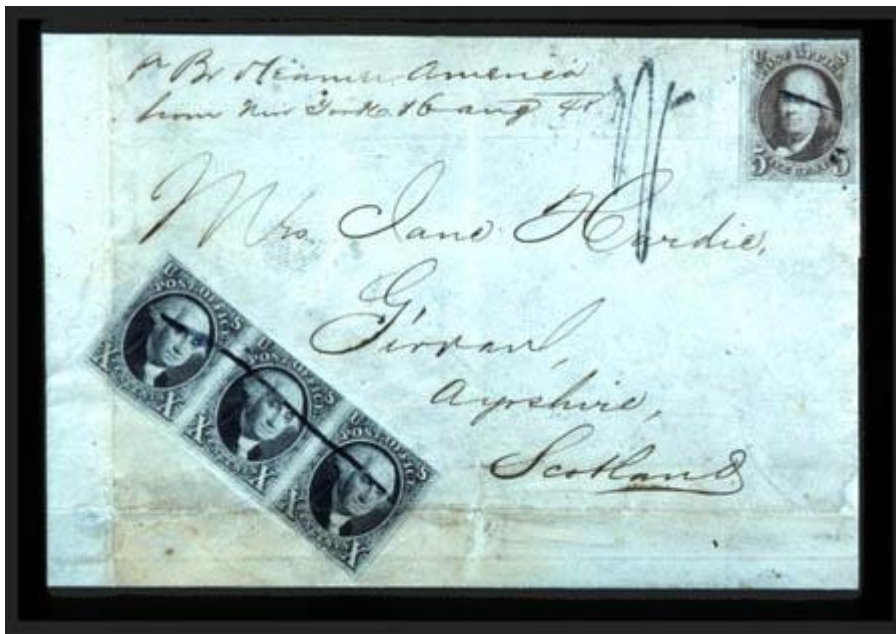 pr Br Steamer America
from New York 16 aug 48
POST OFFICE
5 5
Mrs Jane Hardie,
Girvan,
Ayrshire,
Scotland
U S
POST OFFICE
X TEN CENTS X
U S
POST OFFICE
X X
U S
POST OFFICE
X X